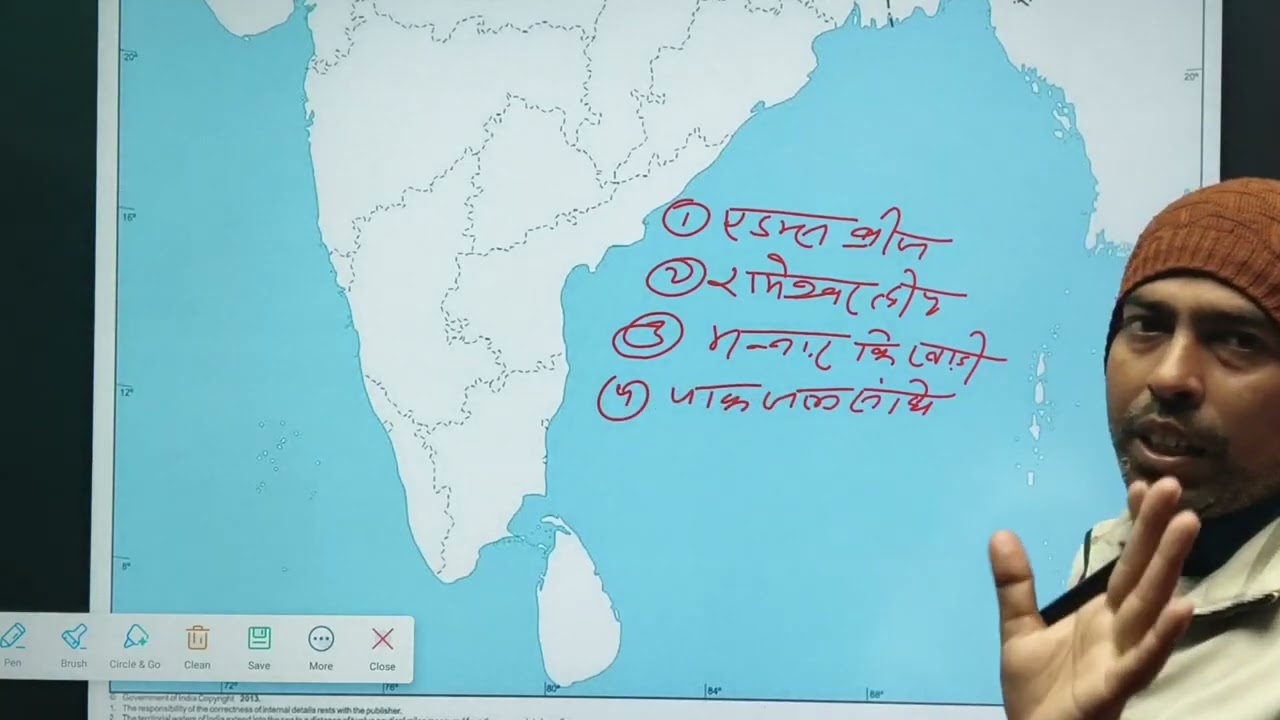 20°
20°
16°
① एडम्स ब्रीज
② रामेश्वर द्वीप
③ मन्नार कि खाड़ी
④ पाक जल संधि
12°
8°
Pen Brush Circle & Go Clean Save More Close
72° 76° 80° 84° 88°
© Government of India Copyright 2013.
1. The responsibility of the correctness of internal details rests with the publisher.
2. The territorial waters of India extend into the sea to a distance of twelve nautical miles measured